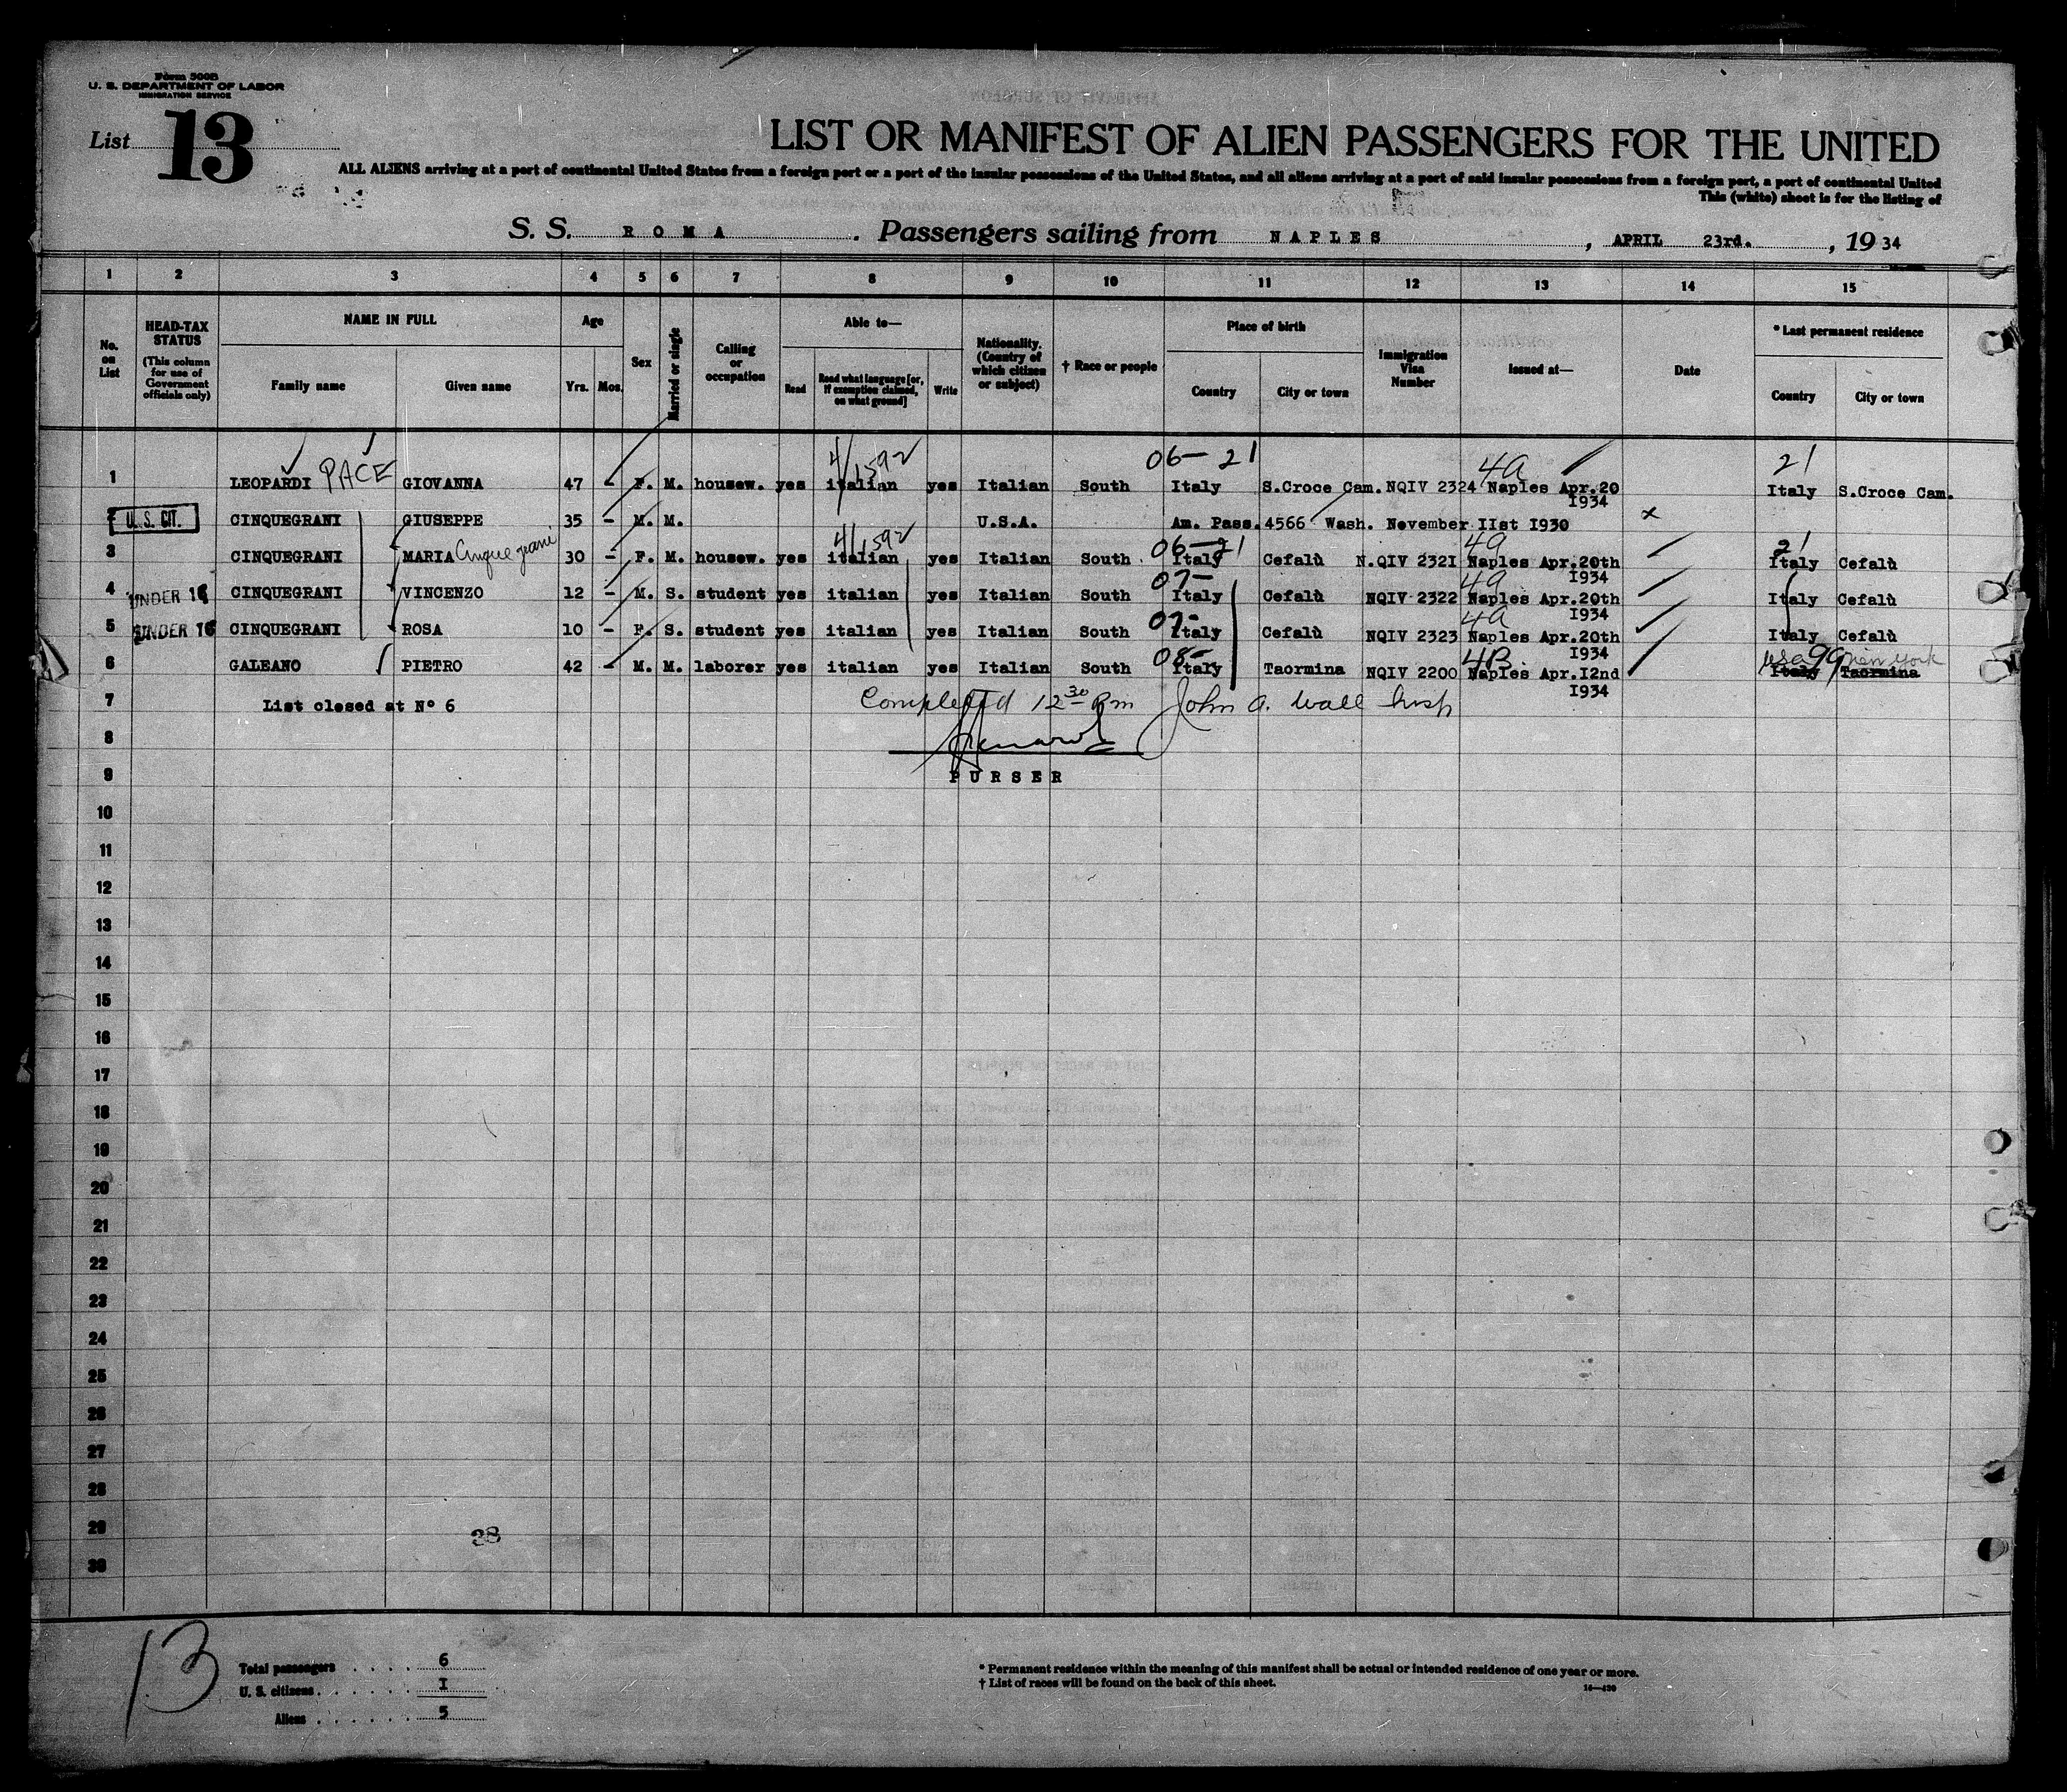 Form 500B
U. S. DEPARTMENT OF LABOR
IMMIGRATION SERVICE
List 13
LIST OR MANIFEST OF ALIEN PASSENGERS FOR THE UNITED
ALL ALIENS arriving at a port of continental United States from a foreign port or a port of the insular possessions of the United States, and all aliens arriving at a port of said insular possessions from a foreign port, a port of continental United
This (white) sheet is for the listing of
S. S. ROMA . Passengers sailing from NAPLES , APRIL 23rd. , 19 34
1 2 3 4 5 6 7 8 9 10 11 12 13 14 15
No. on List
HEAD-TAX STATUS (This column for use of Government officials only)
NAME IN FULL
Family name Given name
Age
Yrs. Mos.
Sex
Married or single
Calling or occupation
Able to—
Read Read what language [or, if exemption claimed, on what ground] Write
Nationality. (Country of which citizen or subject)
† Race or people
Place of birth
Country City or town
Immigration Visa Number
Issued at—
Date
* Last permanent residence
Country City or town
4/1592 06-21 4a 21
1 LEOPARDI PACE GIOVANNA 47 - F. M. housew. yes italian yes Italian South Italy S.Croce Cam. NQIV 2324 Naples Apr.20 Italy S.Croce Cam.
1934
2 U. S. CIT. CINQUEGRANI GIUSEPPE 35 - M. M. U.S.A. Am. Pass. 4566 Wash. November IIst I930 x
4/1592 06-21 4a 21
3 CINQUEGRANI MARIA Cinquegrani 30 - F. M. housew. yes italian yes Italian South Italy Cefalù N.QIV 232I Naples Apr.20th Italy Cefalù
I934
07- 4a
4 UNDER 16 CINQUEGRANI VINCENZO 12 - M. S. student yes italian yes Italian South Italy Cefalù NQIV 2322 Naples Apr.20th Italy Cefalù
I934
07- 4a
5 UNDER 16 CINQUEGRANI ROSA 10 - F. S. student yes italian yes Italian South Italy Cefalù NQIV 2323 Naples Apr.20th Italy Cefalù
I934
08- 4B usa 99 New York
6 GALEANO PIETRO 42 - M. M. laborer yes italian yes Italian South Italy Taormina NQIV 2200 Naples Apr.12nd Italy Taormina
I934
7 List closed at Nº 6 Completed 12 30 Pm John A. Wall Insp
8
PURSER
9
10
11
12
13
14
15
16
17
18
19
20
21
22
23
24
25
26
27
28
29
38
30
13
Total passengers . . . . 6
U. S. citizens . . . . . . I
Aliens . . . . . . 5
* Permanent residence within the meaning of this manifest shall be actual or intended residence of one year or more.
† List of races will be found on the back of this sheet.
14—430